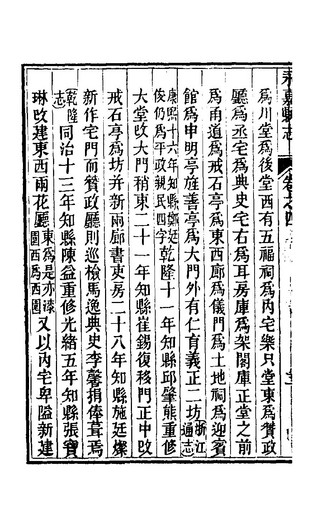 永嘉縣志 卷之四
爲川堂爲後堂西有五福祠爲內宅樂只堂東爲贊政
廳爲丞宅爲典史宅右爲耳房庫爲架閣庫正堂之前
爲甬道爲戒石亭爲東西廊爲儀門爲土地祠爲迎賓
館爲申明亭旌善亭爲大門外有仁育義正二坊浙江通志
康熙十六年知縣鄭廷俊仍爲平政親民四字乾隆十一年知縣邱肇熊重修
大堂改大門稍東二十一年知縣崔錫復移門正中改
戒石亭爲坊并新兩廊書吏房二十八年知縣施廷燦
新作宅門而贊政廳則巡檢馬逸典史李馨捐俸葺焉
乾隆志同治十三年知縣陳益重修光緒五年知縣張寶
琳改建東西兩花廳東爲是亦園西爲西園又以內宅卑隘新建